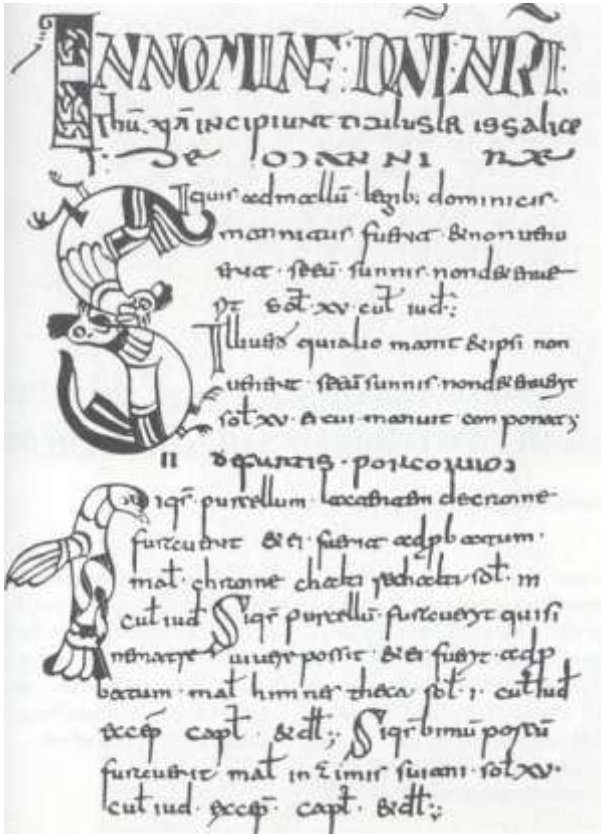 IN NOMINE : DN̄I : NR̄I :
Ihū xp̄i INCIPIUNT TITULUS LR ISSALICE
I · DE MANNIRE
Siquis ad mallū · legib; dominicis ·
mannitus fuerit & non uenu
erit · si eū sunnis non detenue
rt sol̄ · xv · cul̄ iud̄ ·;
Ille uero qui alio manit & ipsi non
uenerit · si eū sunnis non detenuert
sol̄ xv · & cui manuit conponat;
II DE FURTIS · PORCORUM
Siqr purcellum · lactentem de cranne
furauerit & ei · fuerit adpbatum ·
mal̄ · chranne chalti rechalti sol̄ · III
cul̄ iud̄ Siqr purcellū · furauert qui si
ne matre uiuere possit · & ei fuert · adp
batum · mal̄ himnes theca · sol̄ · I · cul̄ iud̄
excep̄ capt̄ · & dil̄ ·; Siqr bimū porcū
furauerit mal̄ in zimis suiani · sol̄ xv ·
cul̄ iud · excep̄ · capt̄ · & dil̄ ·;